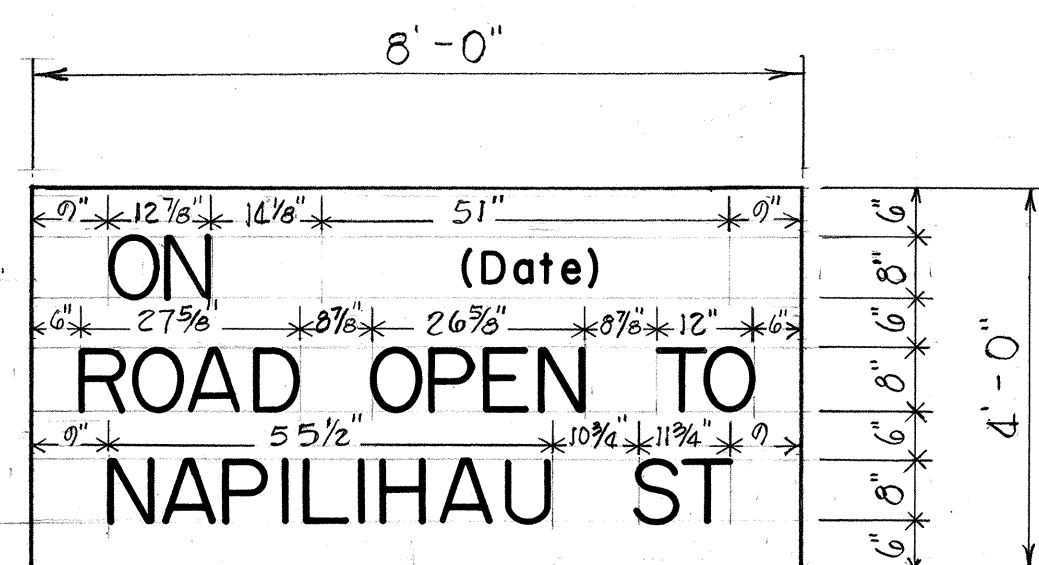 8'-0"
9" 12 7/8" 14 1/8" 51" 9" 6"
ON (Date) 8"
6" 27 5/8" 8 7/8" 26 5/8" 8 7/8" 12" 6" 6"
ROAD OPEN TO 8" 4'-0"
9" 55 1/2" 10 3/4" 11 3/4" 9 6"
NAPILIHAU ST 8"
6"